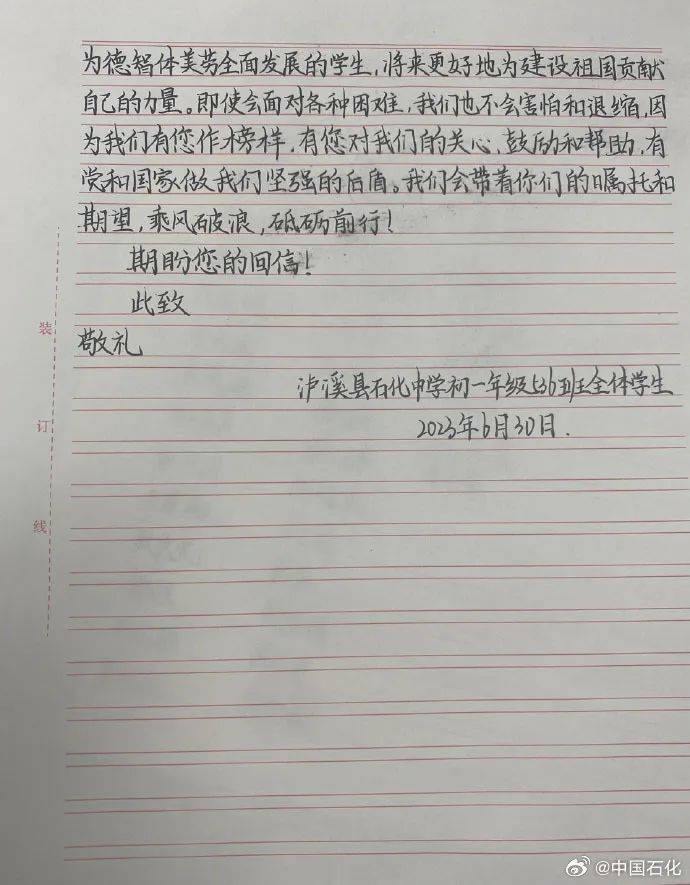 为德智体美劳全面发展的学生，将来更好地为建设祖国贡献
自己的力量。即使会面对各种困难，我们也不会害怕和退缩，因
为我们有您作榜样，有您对我们的关心、鼓励和帮助，有
党和国家做我们坚强的后盾。我们会带着你们的嘱托和
期望，乘风破浪，砥砺前行！
期盼您的回信！
此致
敬礼
泸溪县石化中学初一年级536班全体学生
2023年6月30日.
装
订
线
@中国石化